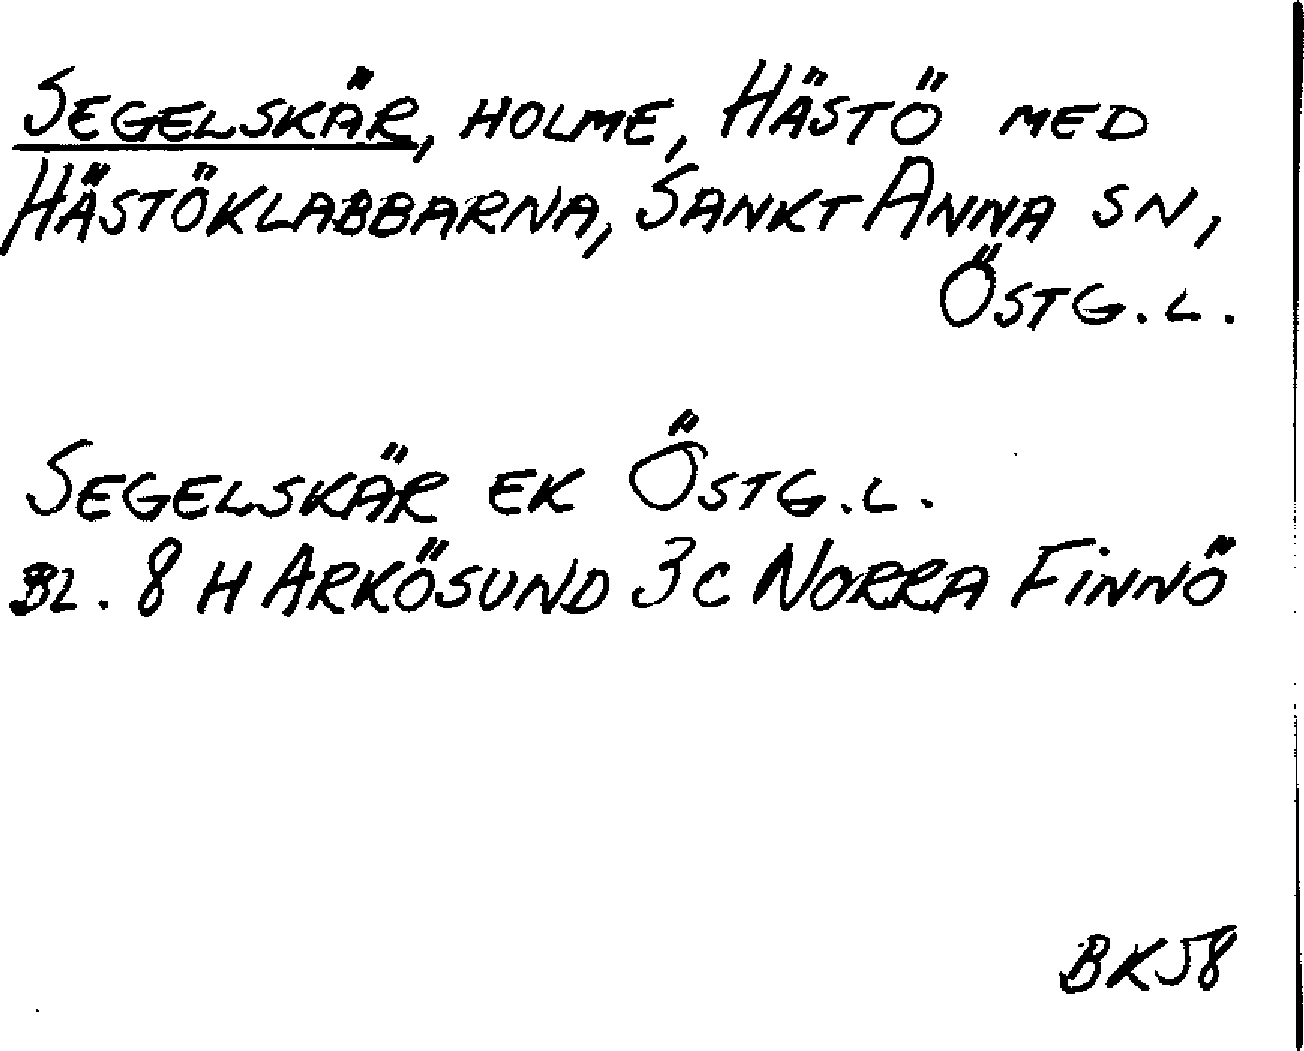 SEGELSKÄR, HOLME, HÄSTÖ MED
HÄSTÖKLABBARNA, SANKT ANNA SN,
ÖSTG.L.
SEGELSKÄR EK ÖSTG.L.
BL. 8 H ARKÖSUND 3 C NORRA FINNÖ
BK58